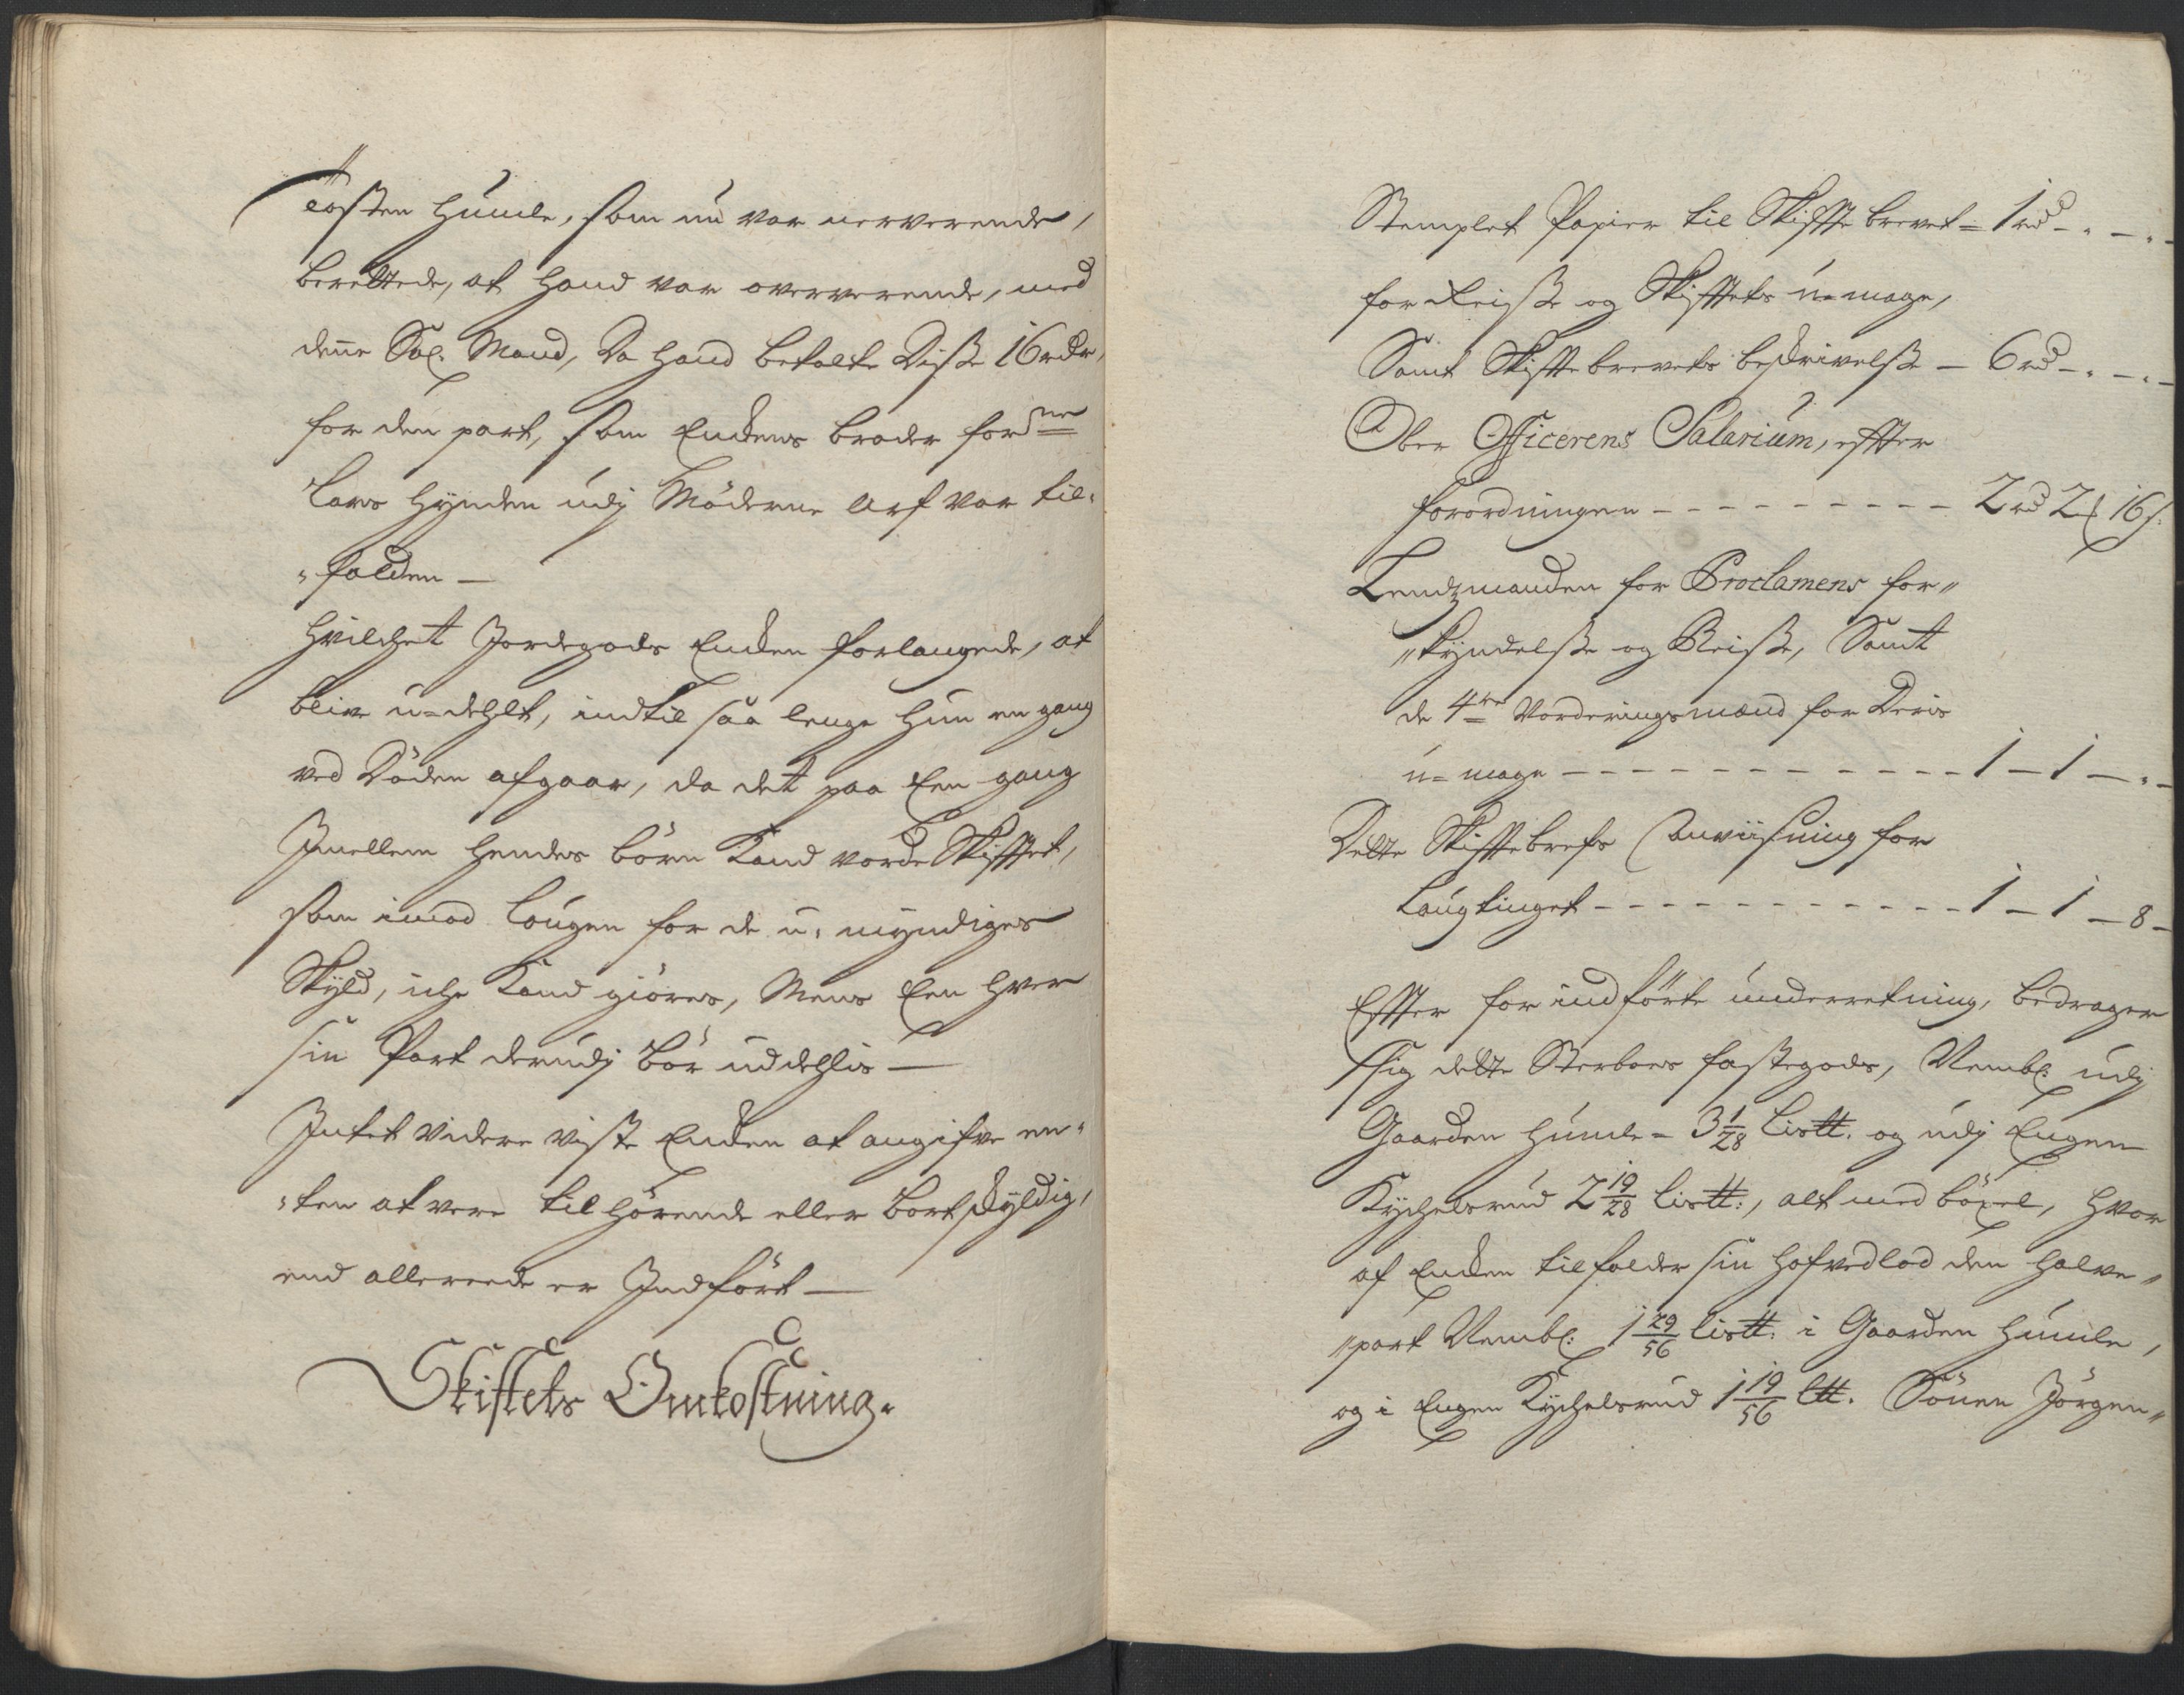 Torsten Humle, som nu var nerverende,
berettede, at hand var oververende, med
denne Sal: Mand, da hand betalte disse 16 rdr,
for den part, som Enckens broder forne
Lars Hynden udj Möderne Arf var til-
"falden —
Hvilchet Jordegods Encken forlangede, at
blive u-dehlt, indtil saa lenge hun en gang
ved Döden afgaar, da det paa Een gang
Imellem hendes börn Kand vorde Skifftet,
som imod Lougen for de u-myndiges
Skyld, iche Kand giöres, Mens Een hver
sin Part derudj bör uddehlis —
Intet videre viste Encken at angifve en-
"ten at vere tilhörende eller bortskyldig,
end allereede er Indfört —
Skiftets Omkostning.
Stemplet Papier til Skiffte brevet = 1 rd - " - " -
for Reisse og Skifftets u-mage,
Samt Skifftebrevets beskrivelse - 6 rd - " - " -
Ober Officerens Salarium, effter
forordningen - - - - - - - - - 2 rd 2 ꝑ 16 s:
Lendzmanden for Proclamens for"
"kyndelsse og Reisse, Samt
de 4re Vorderingsmænd for deris
u-mage - - - - - - - - - - - - 1 - 1 - " -
Dette Skifftebrefs Anviisning for
Laugtinget - - - - - - - - - - - - 1 - 1 - 8 -
Effter for indförte underretning, bedrager
sig dette Sterboes fastegods, Nembl: udj
Gaarden Humle - 3 1/28 Lis℔. og udj Engen
Kychelsrud 2 19/28 Lis℔:, alt med böxel, hvor
af Encken tilfalder sin hofvedlod den halve"
"part Nembl: 1 29/56 Lis℔: i Gaarden Humle,
og i Engen Kychelsrud 1 19/56 L℔. Sönnen Jörgen"